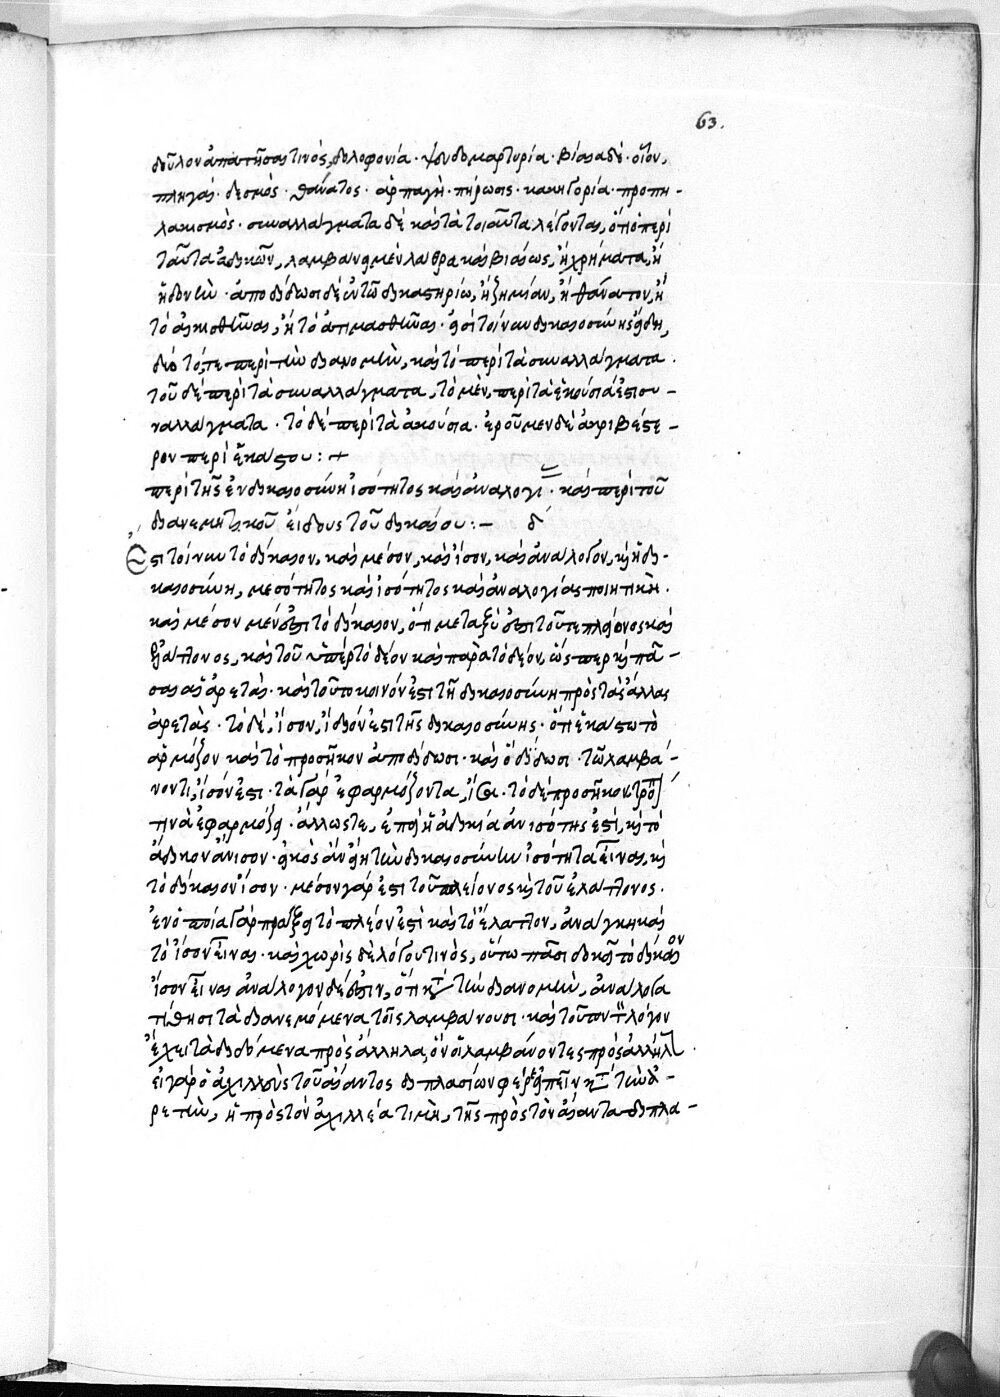 63.
δοῦλον ἀπατῆσαι τινός, δολοφονία· ψευδομαρτυρία· βίαια δὲ· οἷον,
πληγαί· δεσμός· θάνατος· ἁρπαγή· πήρωσις· κακηγορία· προπη-
λακισμός· συναλλάγματα δὲ καὶ τὰ τοιαῦτα λέγονται, ὅτι ὁ περὶ
ταῦτα ἀδικῶν, λαμβάνει μὲν λάθρα καὶ βιαίως, ἢ χρήματα, ἢ
ἡδονὴν· ἀποδίδωσι δὲ ἐν τῷ δικαστηρίω, ἢ ζημίαν, ἢ θάνατον, ἢ
τὸ αἰκισθῆναι, ἢ τὸ ἀτιμασθῆναι· ἔστι τοίνυν δικαιοσύνης εἴδη,
δύο τό, τε περὶ τὴν διανομὴν, καὶ τὸ περὶ τὰ συναλλάγματα.
τοῦ δὲ περὶ τὰ συναλλάγματα, τὸ μὲν, περὶ τὰ ἑκούσια ἐστι συ-
ναλλάγματα· τὸ δὲ περὶ τὰ ἀκούσια· ἐροῦμεν δὲ ἀκριβέστε-
ρον περὶ ἑκάστου: +
περὶ τῆς ἐν δικαιοσύνη ἰσότητος καὶ ἀναλογί· καὶ περὶ τοῦ
διανεμητικοῦ εἴδους τοῦ δικαίου:— δ
Ἔστι τοίνυν τὸ δίκαιον, καὶ μέσον, καὶ ἴσον, καὶ ἀνάλογον, καὶ ἡ δι-
καιοσύνη, μεσότητος καὶ ἰσότητος καὶ ἀναλογίας ποιητική.
καὶ μέσον μέν ἐστι τὸ δίκαιον, ὅτι μεταξύ ἐστι τοῦ τε πλείονος καὶ
ἐλάττονος, καὶ τοῦ ὑπὲρ τὸ δέον καὶ παρὰ τὸ δέον, ὥσπερ καὶ πᾶ-
σαι αἱ ἀρεταί· καὶ τοῦτο κοινόν ἐστι τῆ δικαιοσύνη πρὸς τὰς ἄλλας
ἀρετάς· τὸ δέ, ἴσον, ἴδιόν ἐστι τῆς δικαιοσύνης· ὅτι ἑκάστω τὸ
ἁρμόζον καὶ τὸ προσῆκον ἀποδίδωσι· καὶ ὃ δίδωσι· τῷ λαμβά-
νοντι, ἴσόν ἐστι· τὰ γὰρ ἐφαρμόζοντα, ἴσα· τὸ δὲ προσῆκον τρόπον
τινὰ ἐφαρμόζει· ἄλλωστε, ἐπεὶ ἡ ἀδικία ἀνισότης ἐστί, καὶ τὸ
ἄδικον ἄνισον· εἰκὸς ἂν εἴη τὴν δικαιοσύνην ἰσότητα εἶναι, καὶ
τὸ δίκαιον ἴσον· μέσον γάρ ἐστι τοῦ πλείονος καὶ τοῦ ἐλάττονος.
ἐν ὁποία γὰρ πράξει τὸ πλέον ἐστὶ καὶ τὸ ἔλαττον, ἀνάγκη καὶ
τὸ ἴσον εἶναι· καὶ χωρὶς δὲ λόγου τινὸς, οὕτω πᾶσι δοκεῖ τὸ δίκαιον
ἴσον εἶναι ἀνάλογον δέ ἐστιν, ὅτι κατὰ τὴν διανομὴν, ἀνάλογα
τίθησι τὰ διανεμόμενα τοῖς λαμβάνουσι· καὶ τοῦτον τὸν λόγον
ἔχει τὰ διδόμενα πρὸς ἄλληλα, ὃν οἱ λαμβάνοντες πρὸς ἀλλήλους.
εἰ γὰρ ὁ ἀχιλλεὺς τοῦ αἴαντος διπλασίων φέρε εἰπεῖν κατὰ τὴν ἀ-
ρετὴν, ἡ πρὸς τὸν ἀχιλλέα τιμὴ, τῆς πρὸς τὸν αἴαντα διπλα-